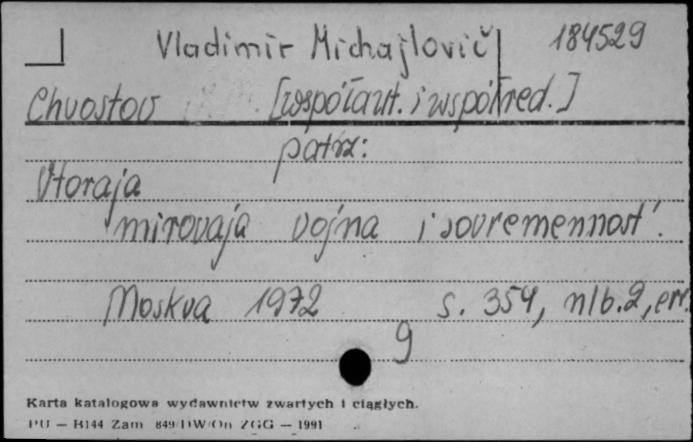 Vladimir Michajlovič 184529
Chvostov [współaut. i współred.]
patrz:
Vtoraja
mirovaja vojna i sovremennost'.
Moskva 1972 s. 354, nlb. 2, err.
9
Karta katalogowa wydawnictw zwartych i ciągłych.
PU — B144 Zam 849/DW/On ZGG — 1991